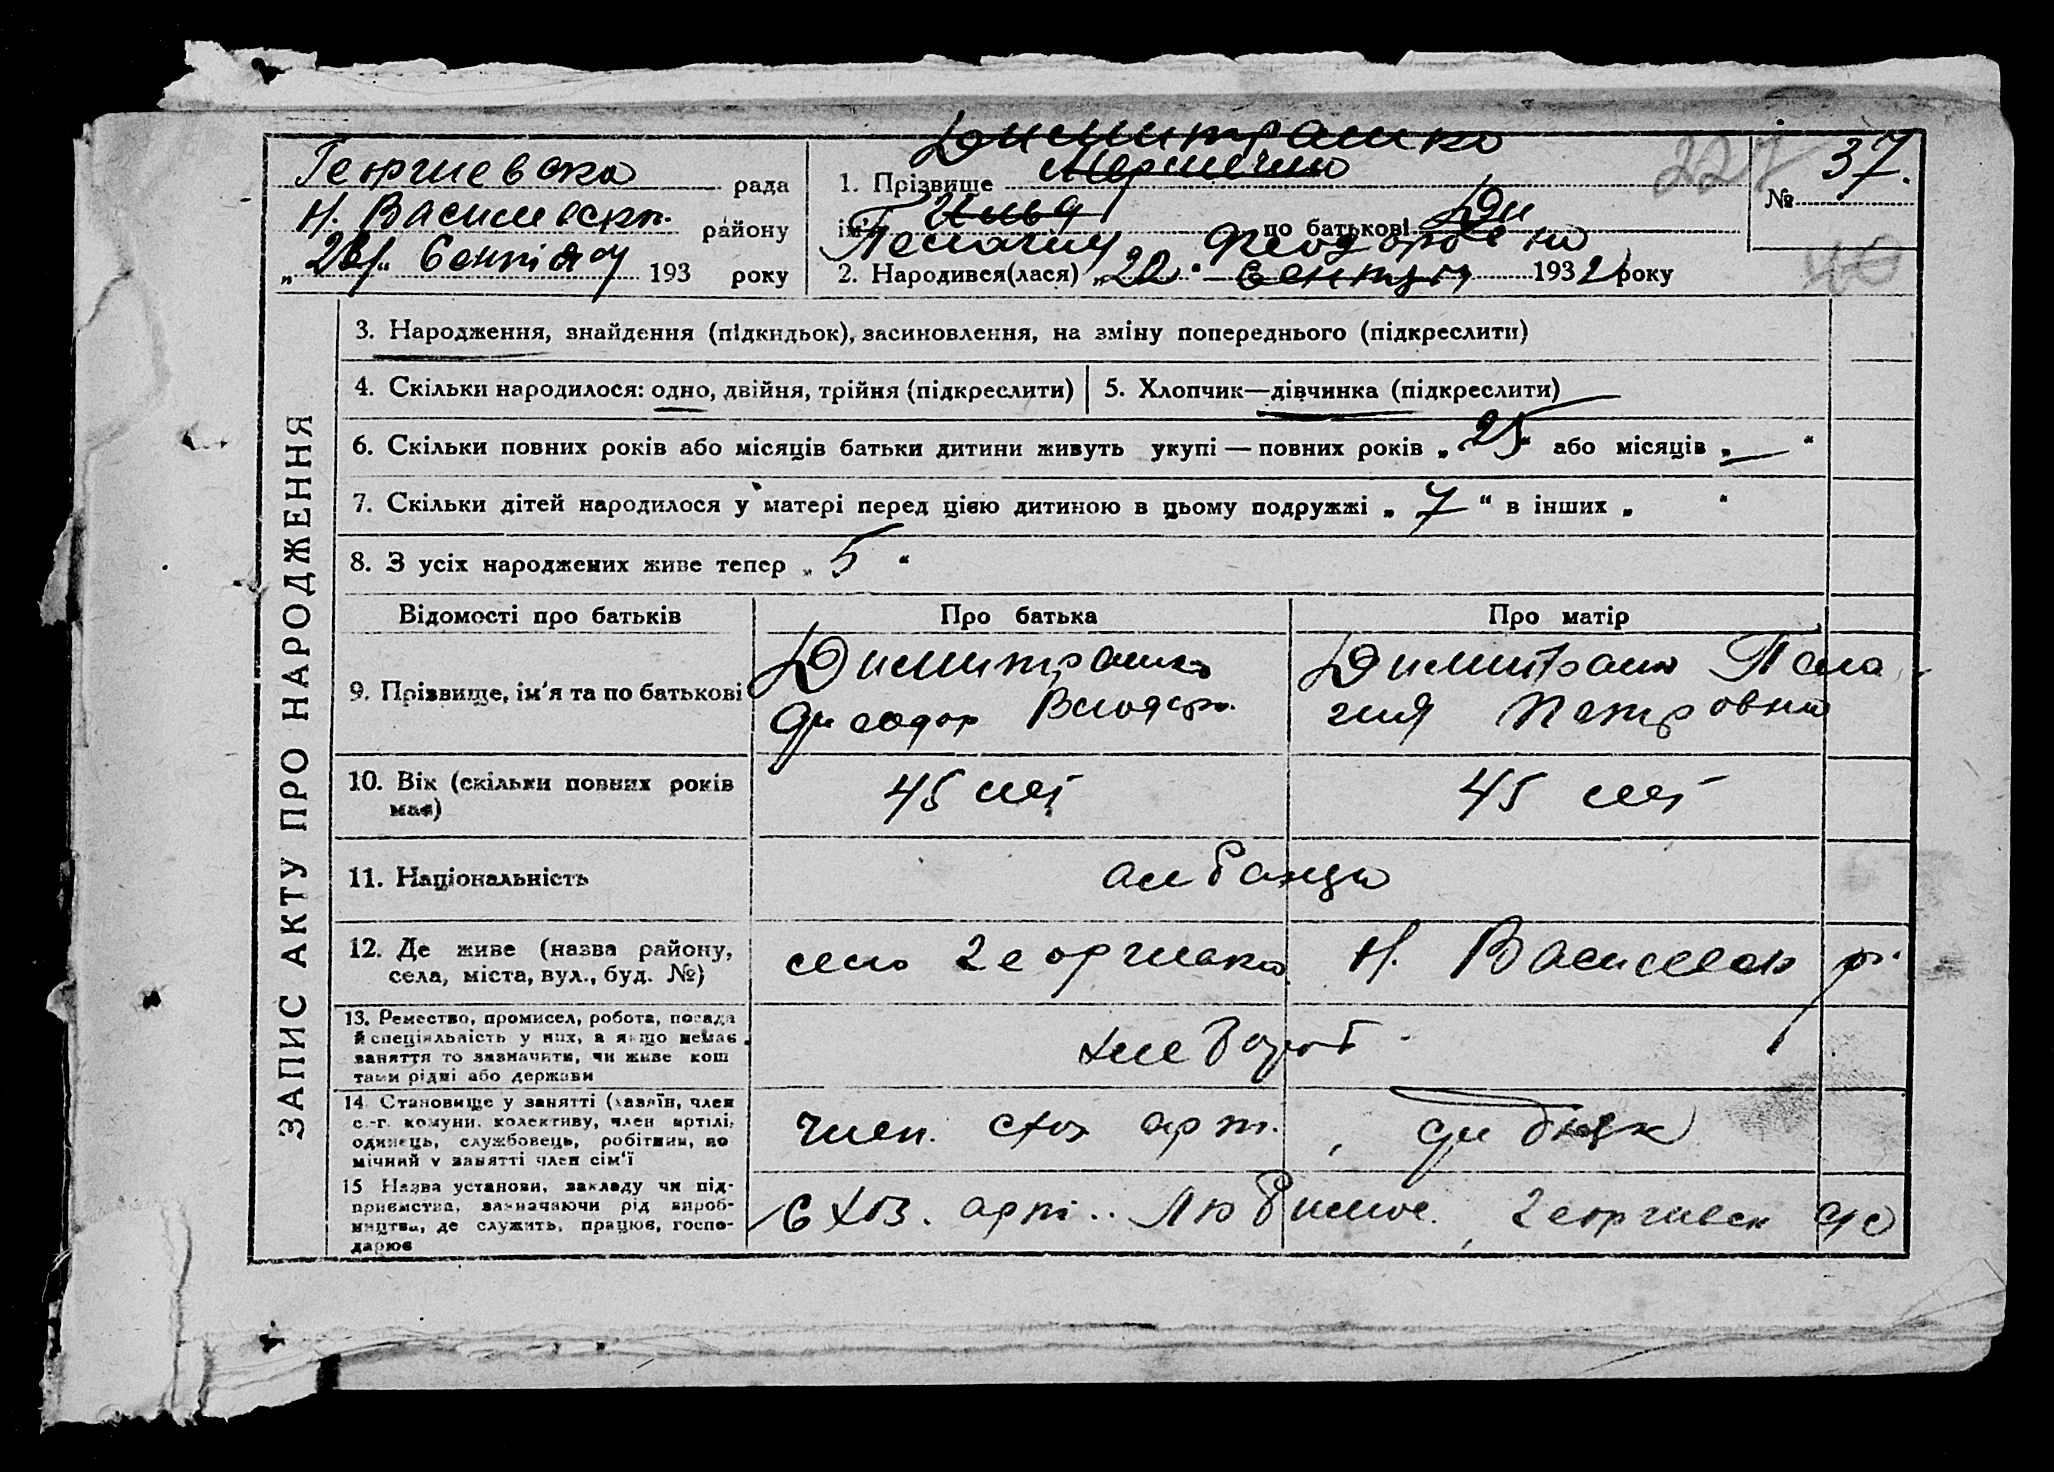 Димитрашко
Георгиевска рада
1. Прізвище
№ 37.
227
Н. Василевск. району
ім'я Илья по батькові Ди
Пелагия Феодоровна
„28“ Сентября 193 року
2. Народився(лася) „22“ Сентяб 1932 року
40
ЗАПИС АКТУ ПРО НАРОДЖЕННЯ
3. Народження, знайдення (підкидьок), засиновлення, на зміну попереднього (підкреслити)
4. Скільки народилося: одно, двійня, трійня (підкреслити)
5. Хлопчик—дівчинка (підкреслити)
6. Скільки повних років або місяців батьки дитини живуть укупі — повних років „25“ або місяців „—“
7. Скільки дітей народилося у матері перед цією дитиною в цьому подружжі „7“ в інших „ “
8. З усіх народжених живе тепер „5“
Відомості про батьків
Про батька
Про матір
9. Прізвище, ім'я та по батькові
Димитрашко
Феодор
Димитрашко Пела
гия Петровна
10. Вік (скільки повних років
має)
45 лет
45 лет
11. Національність
албанцы
12. Де живе (назва району,
села, міста, вул., буд. №)
село Георгиевка Н. Василевск р.
13. Ремество, промисел, робота, посада
й спеціяльність у них, а якщо немає
заняття то зазначити, чи живе кош
тами рідні або держави
хлебороб
14. Становище у занятті (хазяїн, член
с.-г. комуни, колективу, член артілі,
одинець, службовець, робітник, по
мічний у занятті член сім'ї
член. схоз арт.
15 Назва установи, закладу чи під-
приємства, зазначаючи рід вироб-
ництва, де служить, працює, госпо-
дарює
с хоз. арт. Любимое. Георгиевск с/с